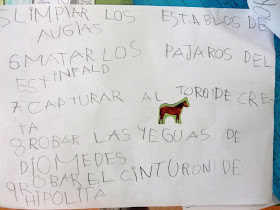 5LIMPIAR LOS ESTABLOS DE
AUGIAS
6MATAR LOS PAJAROS DEL
ESTINFALO
7CAPTURAR AL TORO DE CRE
TA
8ROBAR LAS YEGUAS DE
DIOMEDES
9ROBAR EL CINTURON DE
HIPOLITA